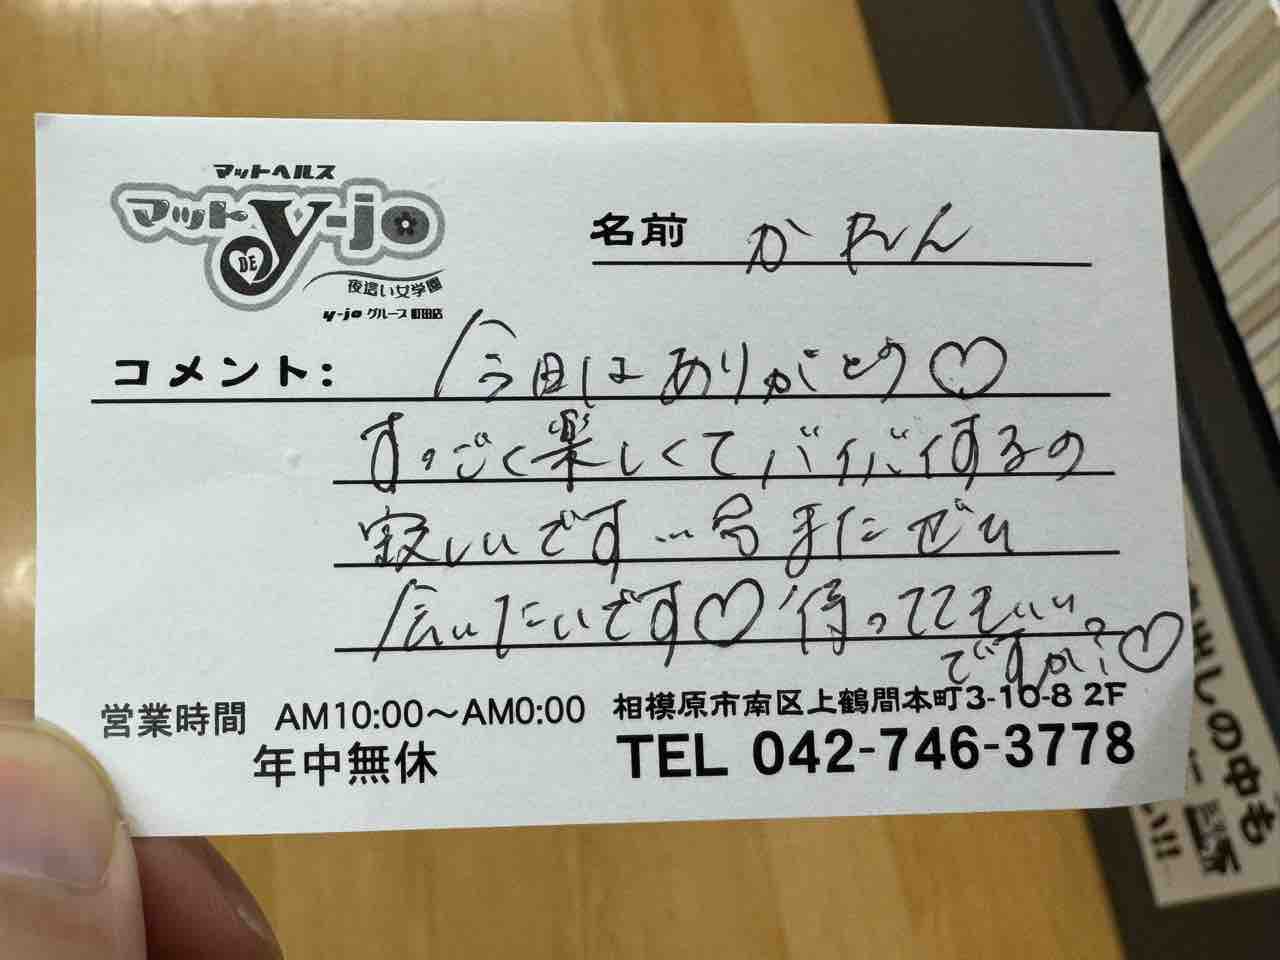 マットヘルス
マット
DE
y-jo
夜這い女学園
y-jo グループ 町田店
名前 かれん
コメント: 今日はありがとう♡
すっごく楽しくてバイバイするの
寂しいです… またぜひ
会いたいです♡ 待っててもいい
ですか?♡
営業時間 AM10:00〜AM0:00
年中無休
相模原市南区上鶴間本町3-10-8 2F
TEL 042-746-3778
しの中も